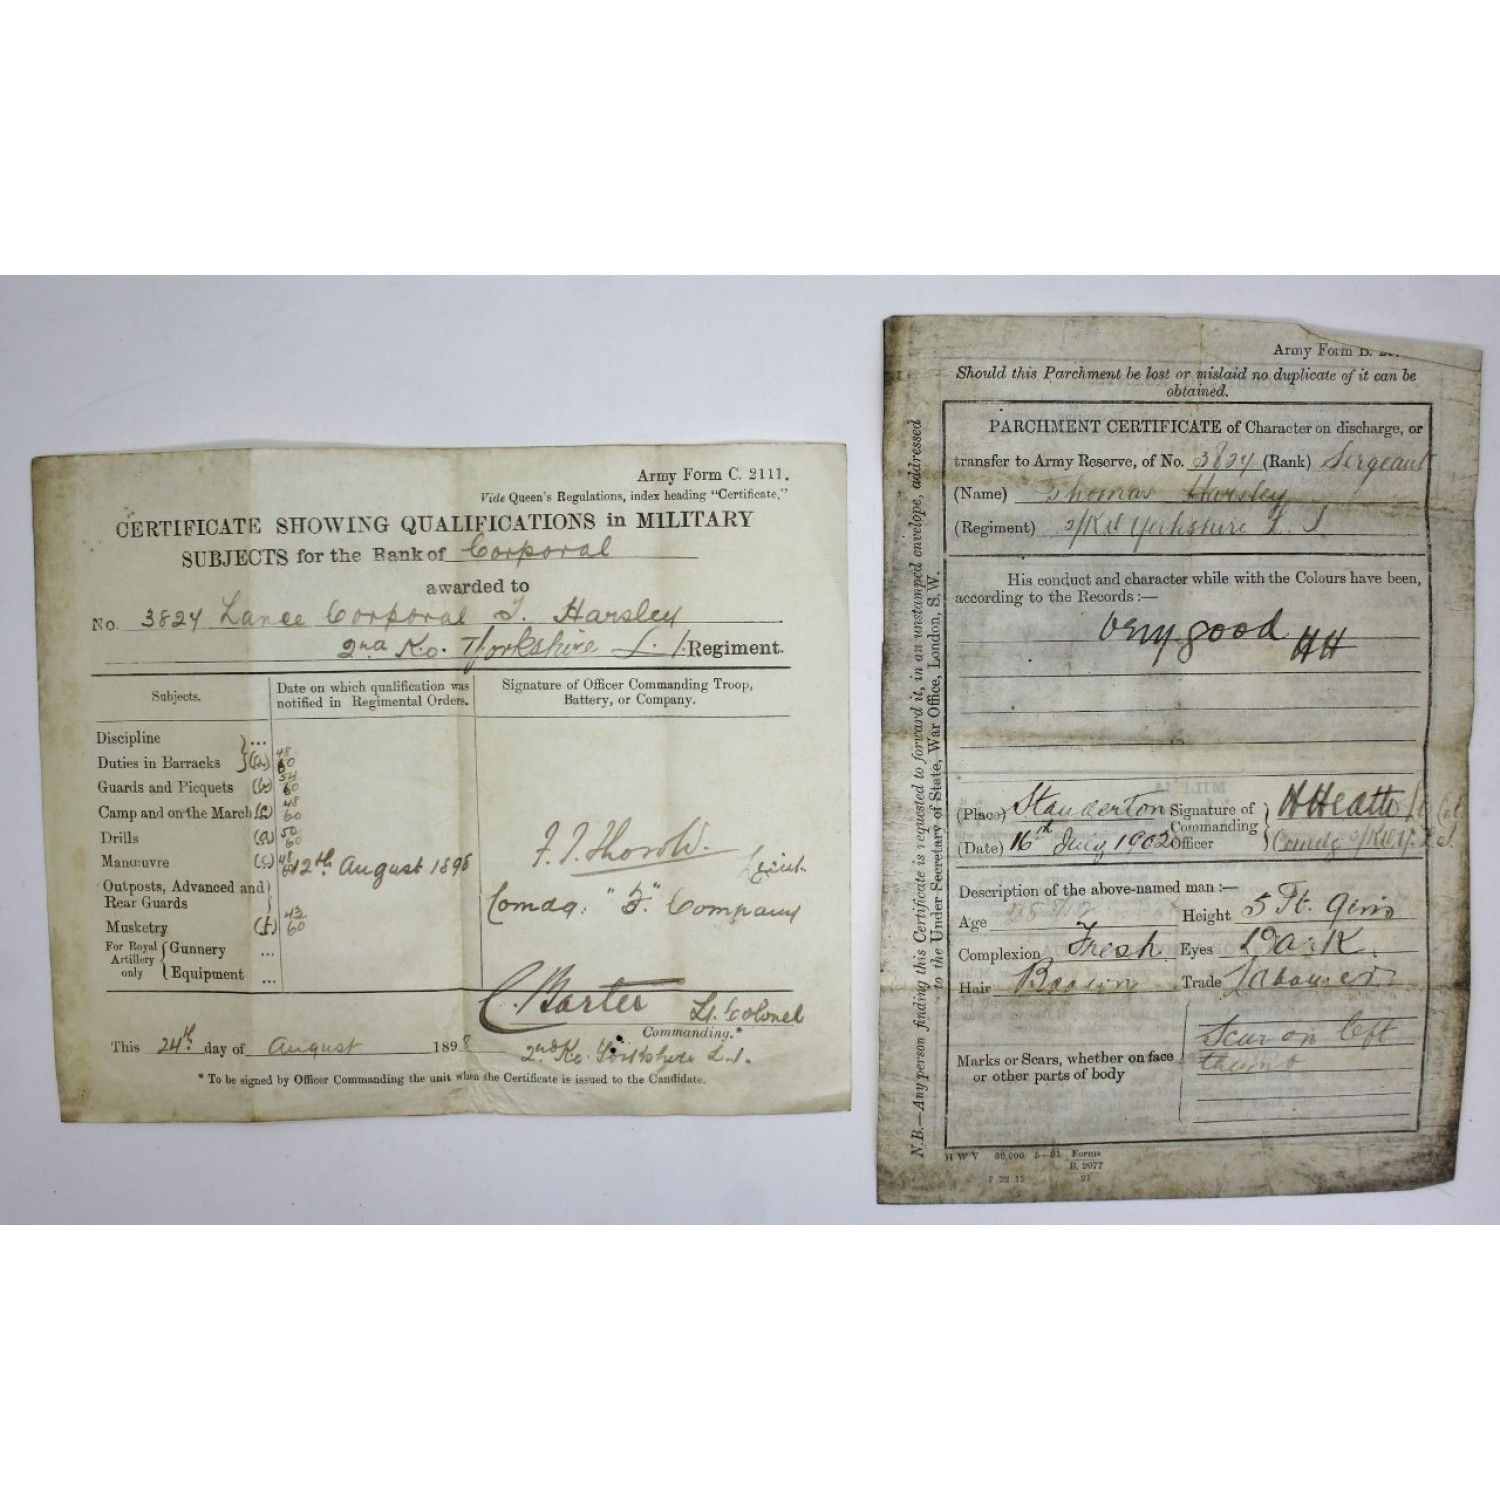 Army Form C. 2111.
Vide Queen's Regulations, index heading "Certificate."
CERTIFICATE SHOWING QUALIFICATIONS in MILITARY
SUBJECTS for the Rank of Corporal
awarded to
No. 3824 Lance Corporal T. Harsley
2nd K.O. Yorkshire L. I. Regiment.
Subjects.
Date on which qualification was notified in Regimental Orders.
Signature of Officer Commanding Troop, Battery, or Company.
Discipline ...
Duties in Barracks (a) 48/60
Guards and Picquets (b) 54/60
Camp and on the March (c) 48/60
Drills (d) 50/60
Manœuvre (e) 48/60 12th August 1898
Outposts, Advanced and
Rear Guards
Musketry (f) 43/60
For Royal Artillery only { Gunnery ...
Equipment ...
F. T. Thorold. Lieut.
Comdg. "F." Company
C. Barter Lt. Colonel
Commanding.*
2nd K.O. Yorkshire L.I.
This 24th day of August 1898
* To be signed by Officer Commanding the unit when the Certificate is issued to the Candidate.
Army Form B.
Should this Parchment be lost or mislaid no duplicate of it can be
obtained.
PARCHMENT CERTIFICATE of Character on discharge, or
transfer to Army Reserve, of No. 3824 (Rank) Sergeant
(Name) Thomas Harsley
(Regiment) 2/K.O. Yorkshire L. I
His conduct and character while with the Colours have been,
according to the Records :—
Very good HH
(Place) Standerton Signature of
(Date) 16th July 1902 Commanding
Officer
H Heath Lt Col
Comdg 2/K.O.Y.L.I.
Description of the above-named man :—
Age Height 5 Ft. 9ins
Complexion Fresh Eyes Dark.
Hair Brown Trade Labourer
Marks or Scars, whether on face
or other parts of body
Scar on left
thumb
N.B.—Any person finding this Certificate is requested to forward it, in an unstamped envelope, addressed
to the Under Secretary of State, War Office, London, S.W.
H W V 80,000 5—01 Forms
B. 2077
7 22 12 27